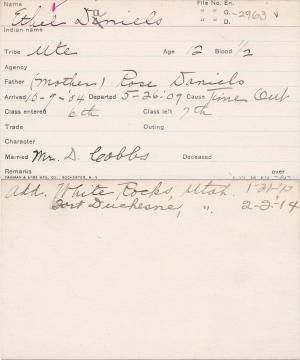 Name Ethel Daniels File No. En.
" " G. 2963 ✓
" " D.
Indian name
Tribe Ute Age 12 Blood 1/2
Agency
Father (Mother) Rose Daniels
Arrived 10-9-04 Departed 5-26-09 Cause Time Out
Class entered 6th Class left 7th
Trade Outing
Character
Married Mr. D. Cobbs Deceased
Remarks over
Add. White Rocks, Utah. 1-21-13
Fort Duchesne, " 2-2-14